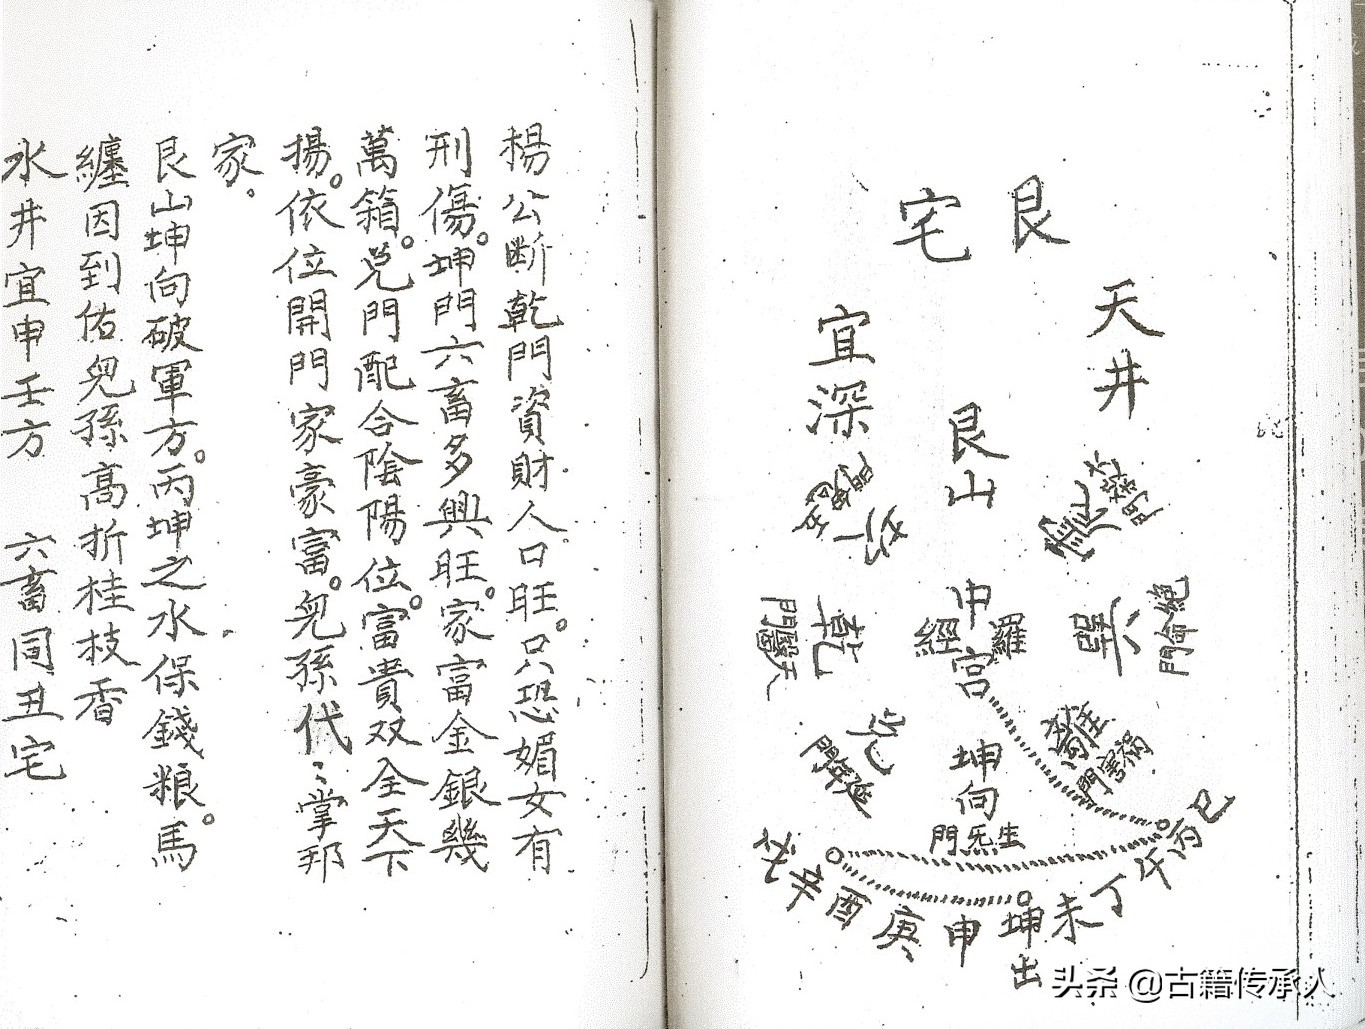 艮宅
天井
宜深
艮山
六煞門
震
坎
五鬼門
中宮
羅經
巽
絕命門
乾
天醫門
離
禍害門
兌
延年門
坤向
生炁門
巳丙午丁未坤申庚酉辛戌
出
楊公斷乾門資財人口旺。只恐媚女有
刑傷。坤門六畜多興旺。家富金銀幾
萬箱。兌門配合陰陽位。富貴双全天下
揚。依位開門家豪富。兒孫代〻掌邦
家。
艮山坤向破軍方。丙坤之水保錢粮。馬
纏因到佑兒孫高折桂枝香
水井宜申壬方 六畜同丑宅
头条 @古籍传承人